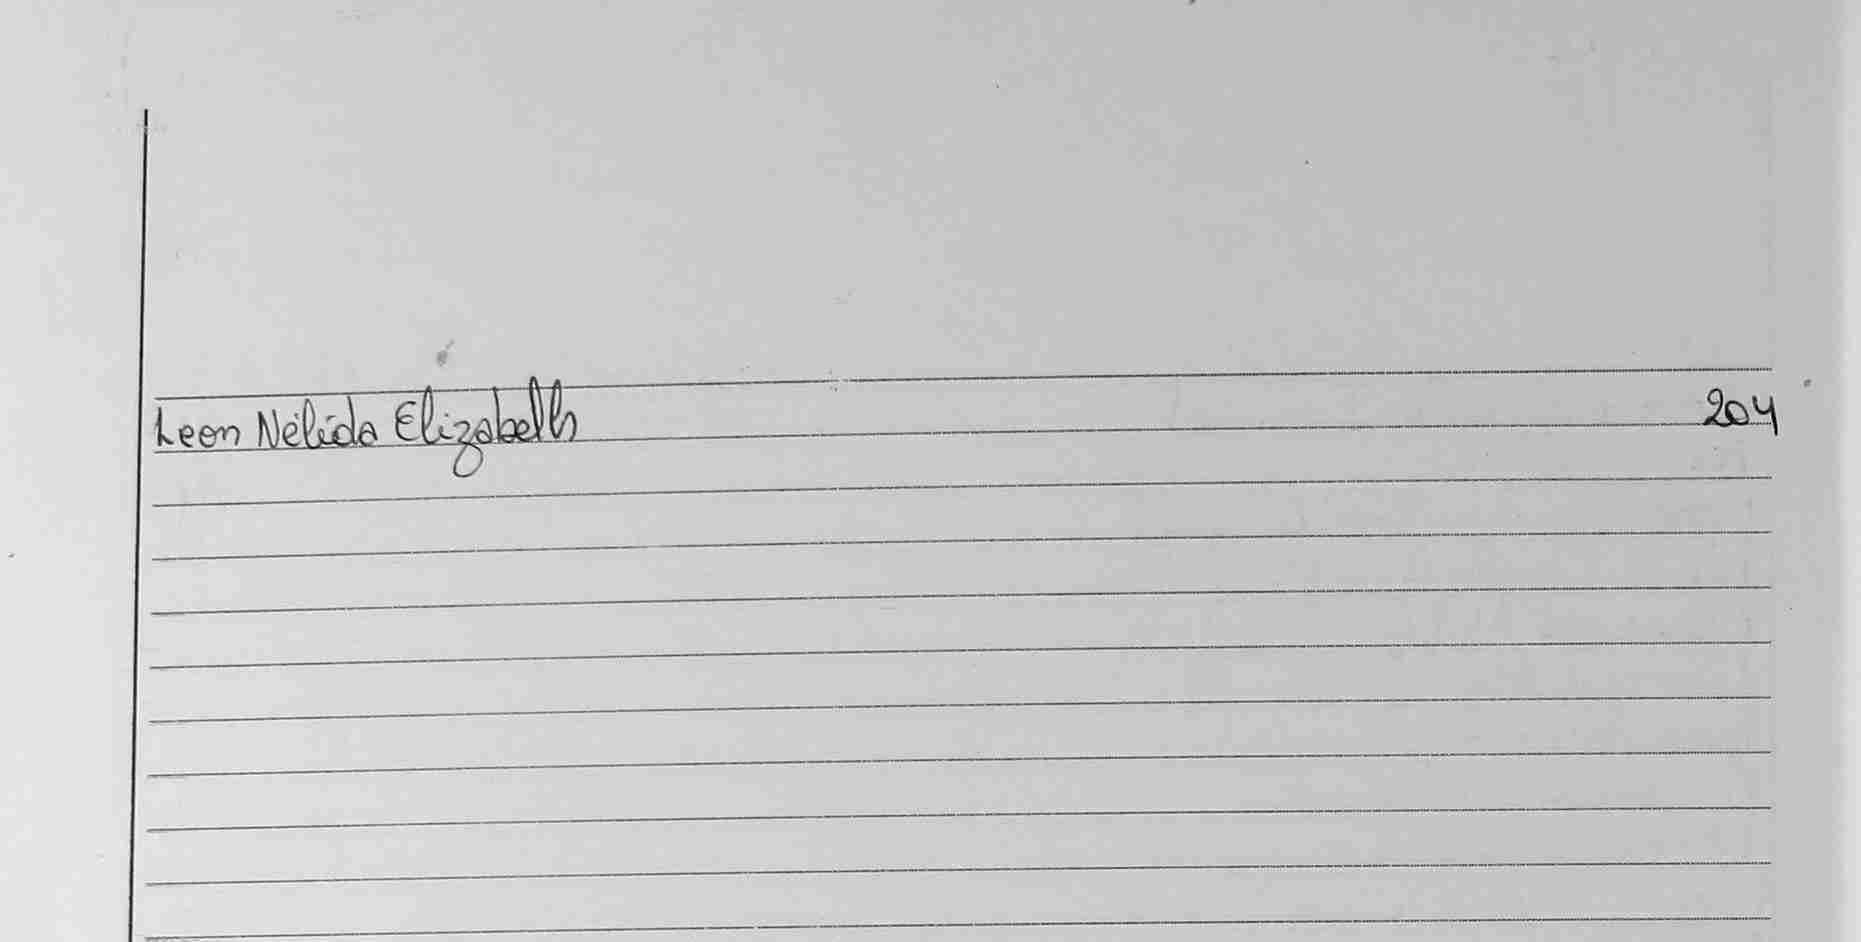 Leon Nélida Elizabeth 204